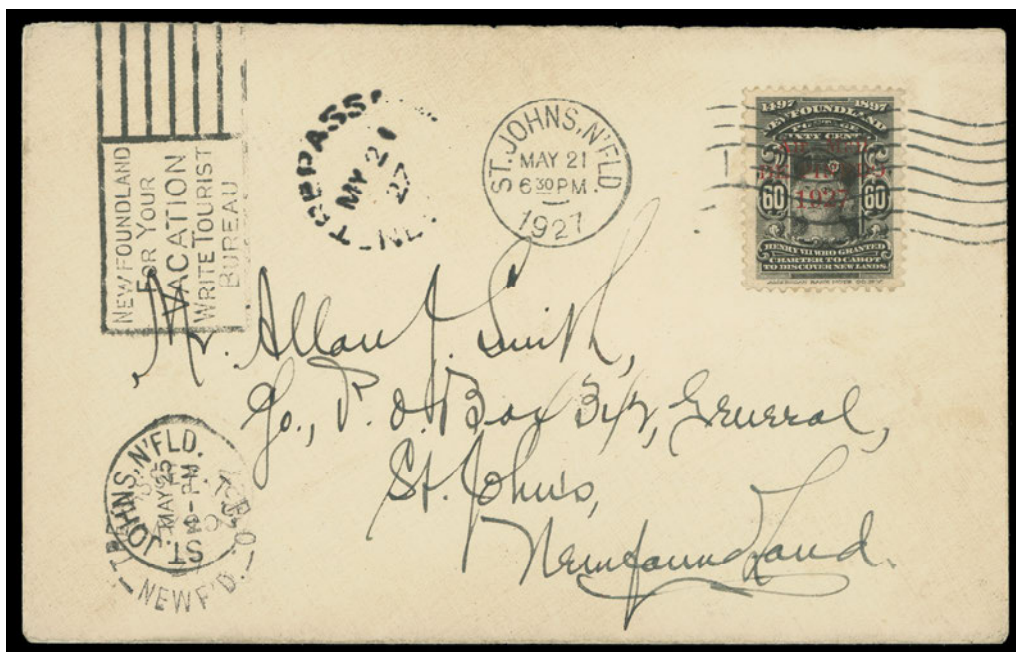 NEWFOUNDLAND
FOR YOUR
VACATION
WRITE TOURIST
BUREAU
TREPASS
MY 21
27
NE
ST. JOHNS, N'FLD.
MAY 21
6 30 PM
1927
1497 1897
NEWFOUNDLAND
POSTAGE
SIXTY CENTS
1927
60 60
HENRY VII WHO GRANTED
CHARTER TO CABOT
TO DISCOVER NEW LANDS.
AMERICAN BANK NOTE CO. N.Y.
Mr. Allan J. Smith,
St. John's,
Newfoundland.
ST. JOHNS, N'FLD.
MAY 25
4 - PM
NEWF'D.